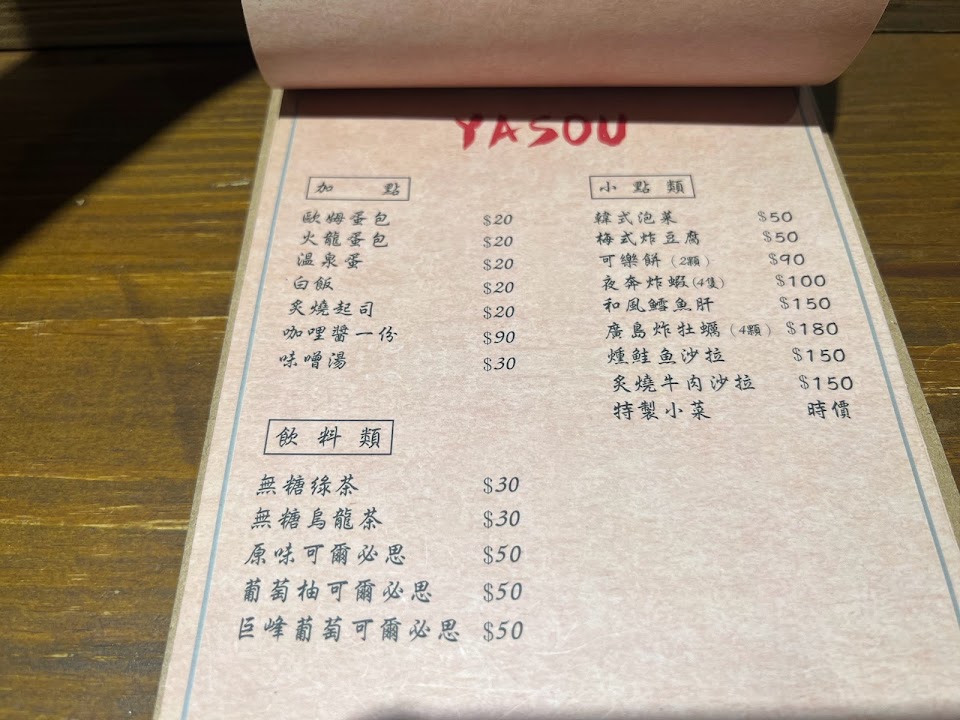 YASOU
加 點
歐姆蛋包 $20
火龍蛋包 $20
溫泉蛋 $20
白飯 $20
炙燒起司 $20
咖哩醬一份 $90
味噌湯 $30
飲料類
無糖綠茶 $30
無糖烏龍茶 $30
原味可爾必思 $50
葡萄柚可爾必思 $50
巨峰葡萄可爾必思 $50
小點類
韓式泡菜 $50
梅式炸豆腐 $50
可樂餅(2顆) $90
夜奔炸蝦(4隻) $100
和風鱈魚肝 $150
廣島炸牡蠣(4顆) $180
燻鮭魚沙拉 $150
炙燒牛肉沙拉 $150
特製小菜 時價